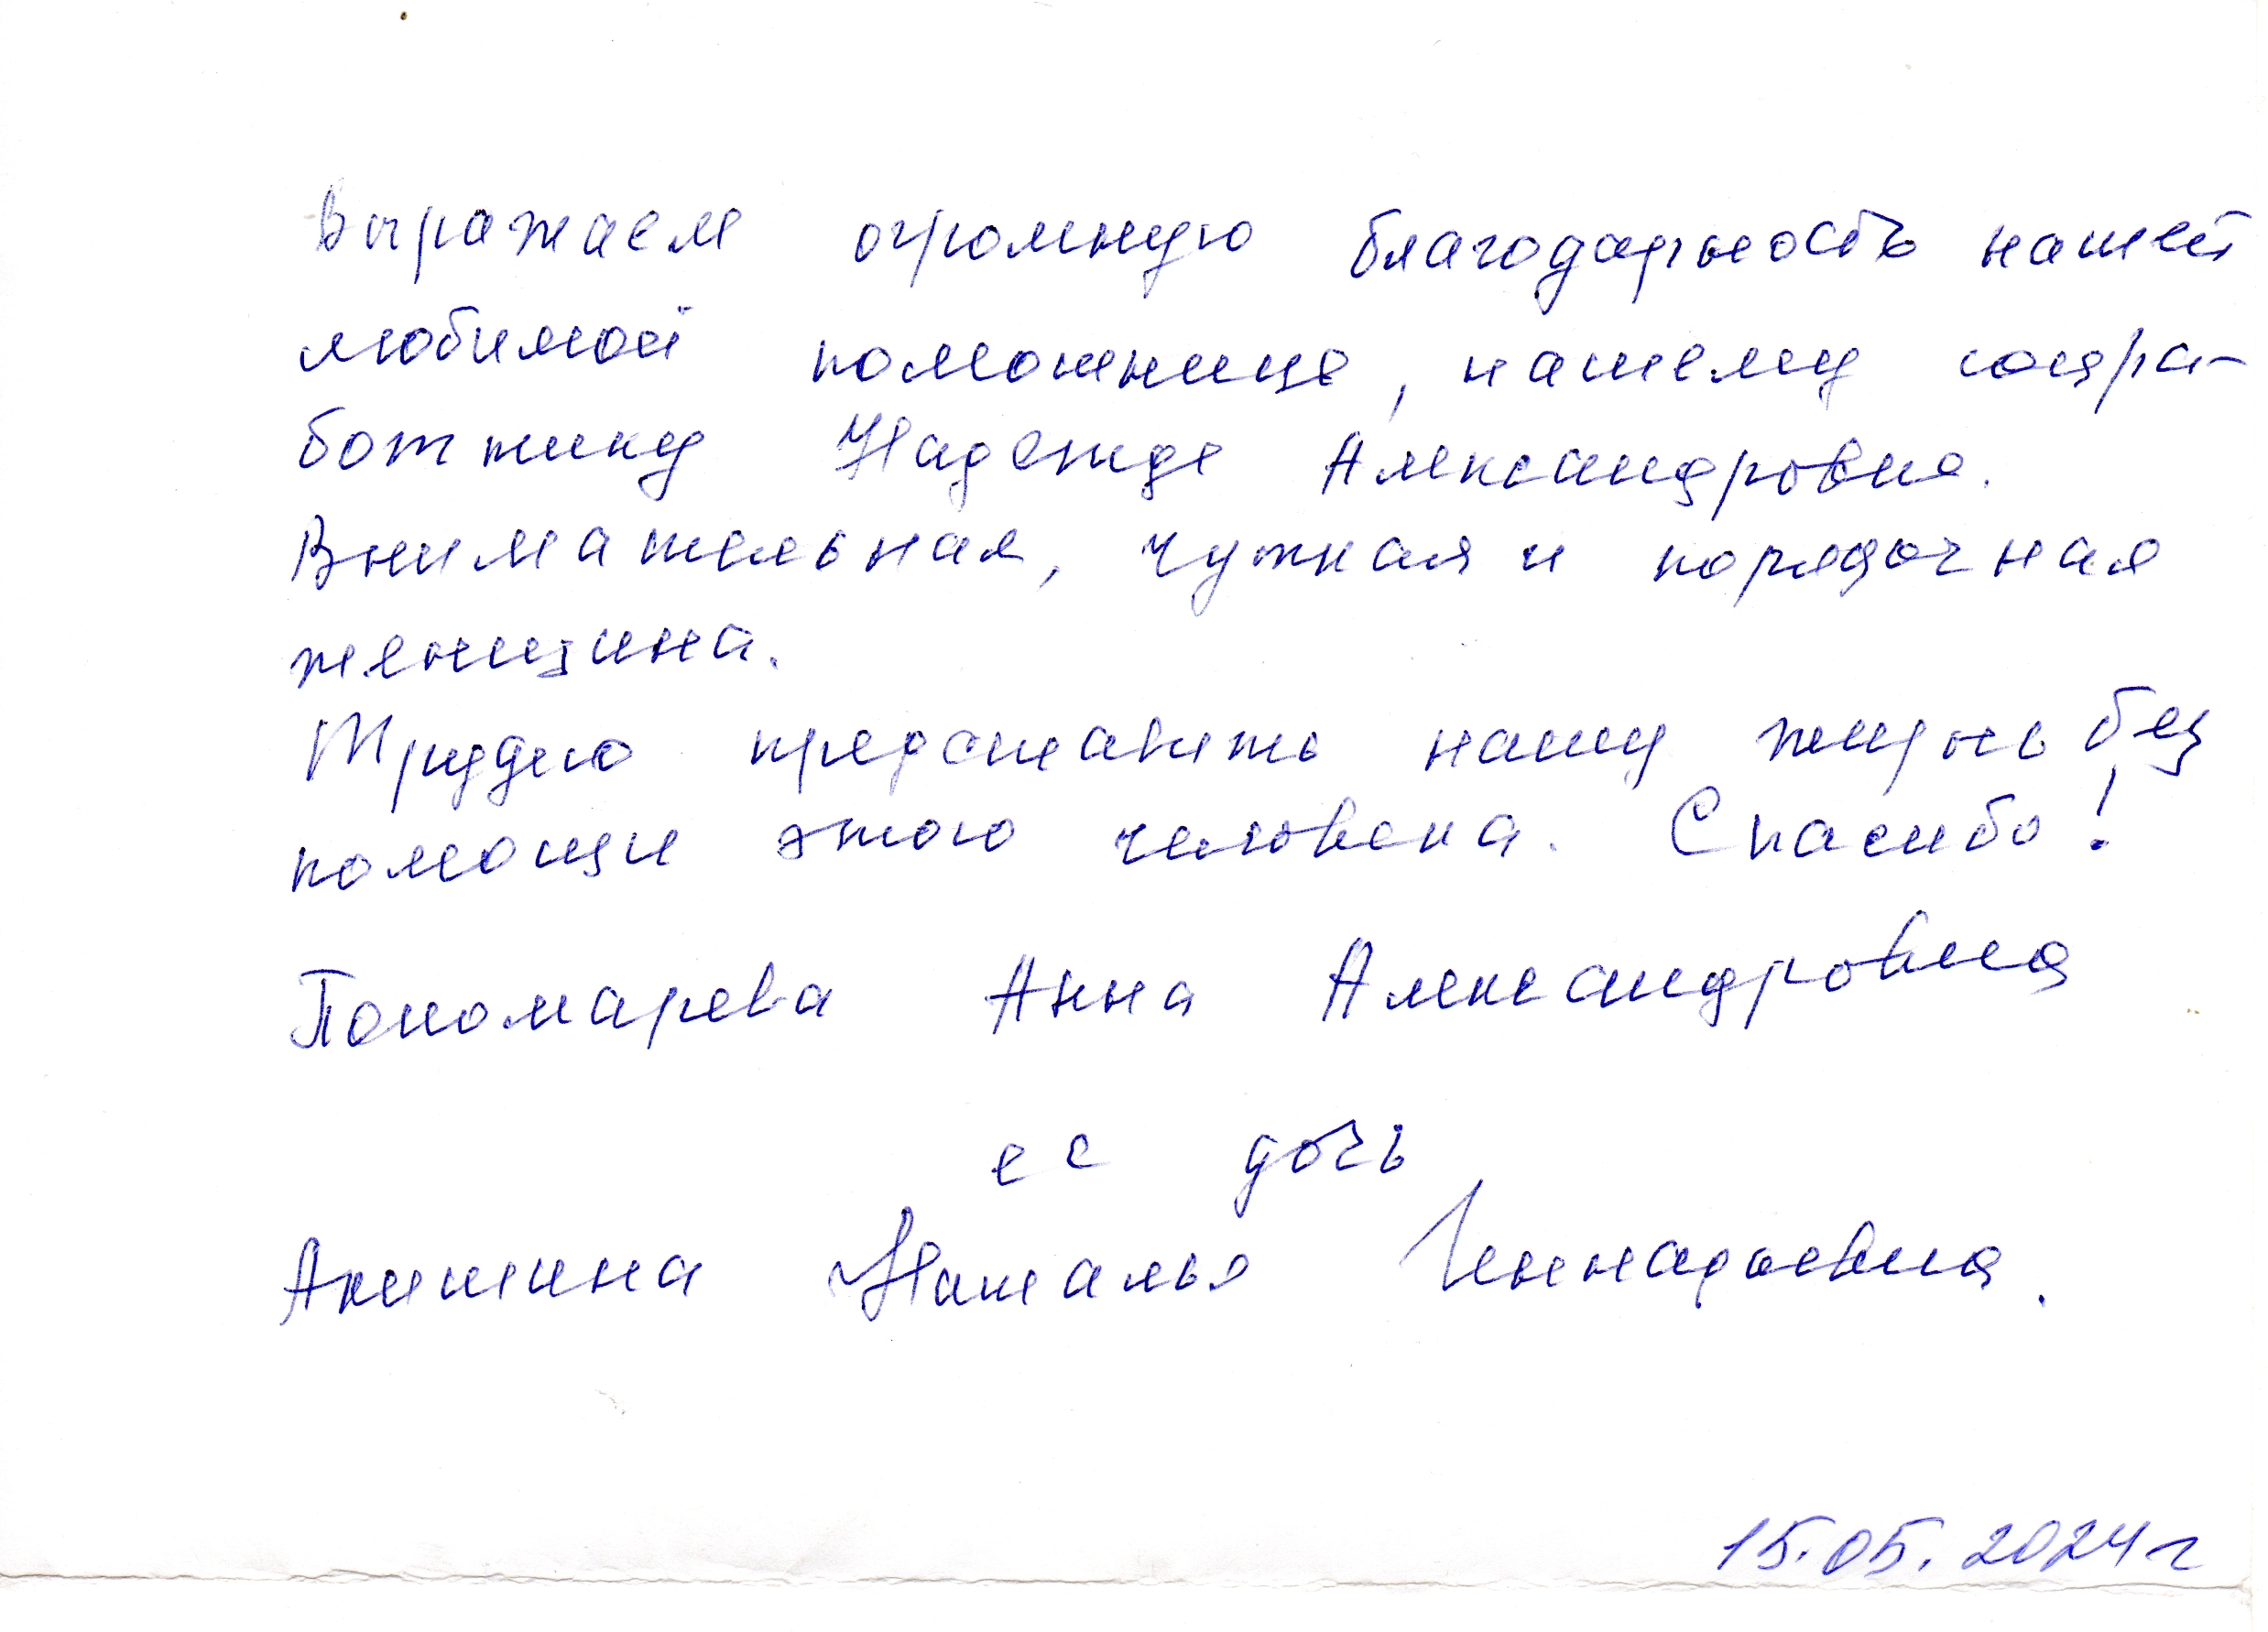 Выражаем огромную благодарность нашей
любимой помощнице, нашему соцра-
ботнику Надежде Александровне.
Внимательная, чуткая и порядочная
женщина.
Трудно представить нашу жизнь без
помощи этого человека. Спасибо!
Пономарева Анна Александровна
ее дочь
Акишина Наталья Геннадьевна.
15.05.2024 г